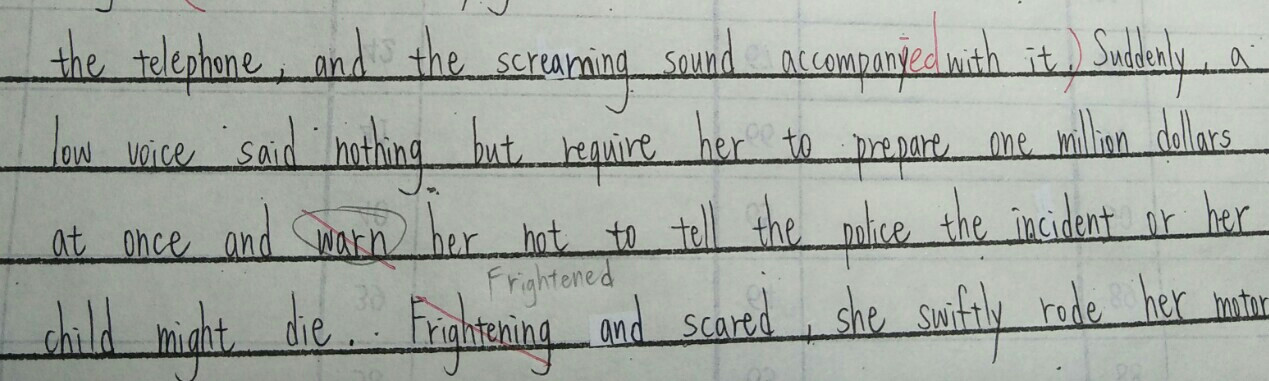 the telephone, and the screaming sound accompanied with it.) Suddenly, a
low voice said nothing but require her to prepare one million dollars
at once and warn her not to tell the police the incident or her
Frightened
child might die. Frightening and scared, she swiftly rode her motor